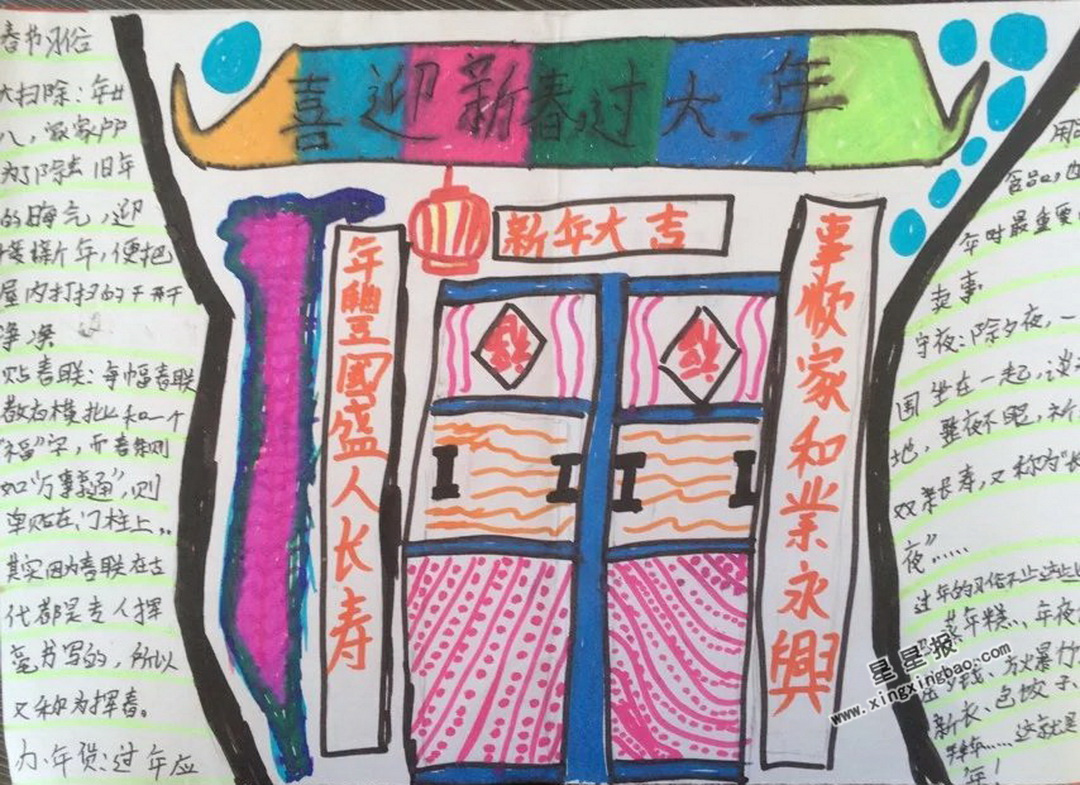 喜迎新春过大年
新年大吉
年豐國盛人长寿
事顺家和業永興
福
福
春节习俗
大扫除：年廿
八，家家户户
为了除去旧年
的晦气，迎
接新年，便把
屋内打扫的干干
净净
贴春联：每幅春联
都有横批和一个
“福”字，而春条则
如“万事通”，则
单贴在门柱上。
其实因为春联在古
代都是专人挥
毫书写的，所以
又称为挥春。
办年货：过年应
用品
食品，也
年时最重要
卖事
守夜：除夕夜，一
围坐在一起，谈
地，整夜不眠，祈
双亲长寿，又称为“长
夜”……
过年的习俗不止这些
年糕、年夜
岁钱、放火爆竹
新衣、包饺子、
这就是
年！
星星报
www.xingxingbao.com